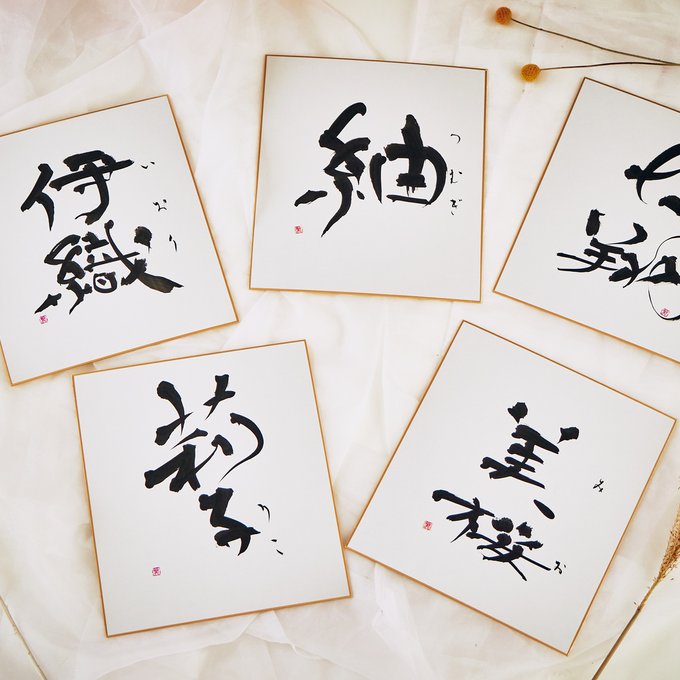 伊織
いおり
紬
つむぎ
莉子
りこ
美桜
みお